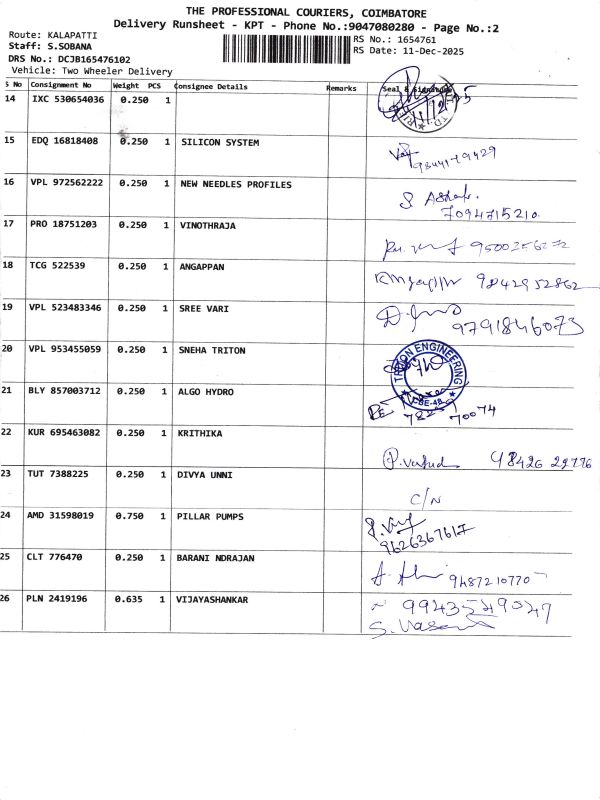 THE PROFESSIONAL COURIERS, COIMBATORE
Delivery Runsheet - KPT - Phone No.:9047080280 - Page No.:2
Route: KALAPATTI
Staff: S.SOBANA
DRS No.: DCJB165476102
Vehicle: Two Wheeler Delivery
RS No.: 1654761
RS Date: 11-Dec-2025
S No Consignment No Weight PCS Consignee Details Remarks Seal & Signature
14 IXC 530654036 0.250 1
15 EDQ 16818408 0.250 1 SILICON SYSTEM
16 VPL 972562222 0.250 1 NEW NEEDLES PROFILES
S
7094715210
17 PRO 18751203 0.250 1 VINOTHRAJA
18 TCG 522539 0.250 1 ANGAPPAN
9842952862
19 VPL 523483346 0.250 1 SREE VARI
9791846073
20 VPL 953455059 0.250 1 SNEHA TRITON
TRITON ENGINEERING
CBE-48
21 BLY 857003712 0.250 1 ALGO HYDRO
70074
22 KUR 695463082 0.250 1 KRITHIKA
98426 22776
23 TUT 7388225 0.250 1 DIVYA UNNI
C/N
24 AMD 31598019 0.750 1 PILLAR PUMPS
9626367617
25 CLT 776470 0.250 1 BARANI NDRAJAN
9487210770
26 PLN 2419196 0.635 1 VIJAYASHANKAR
9943549047